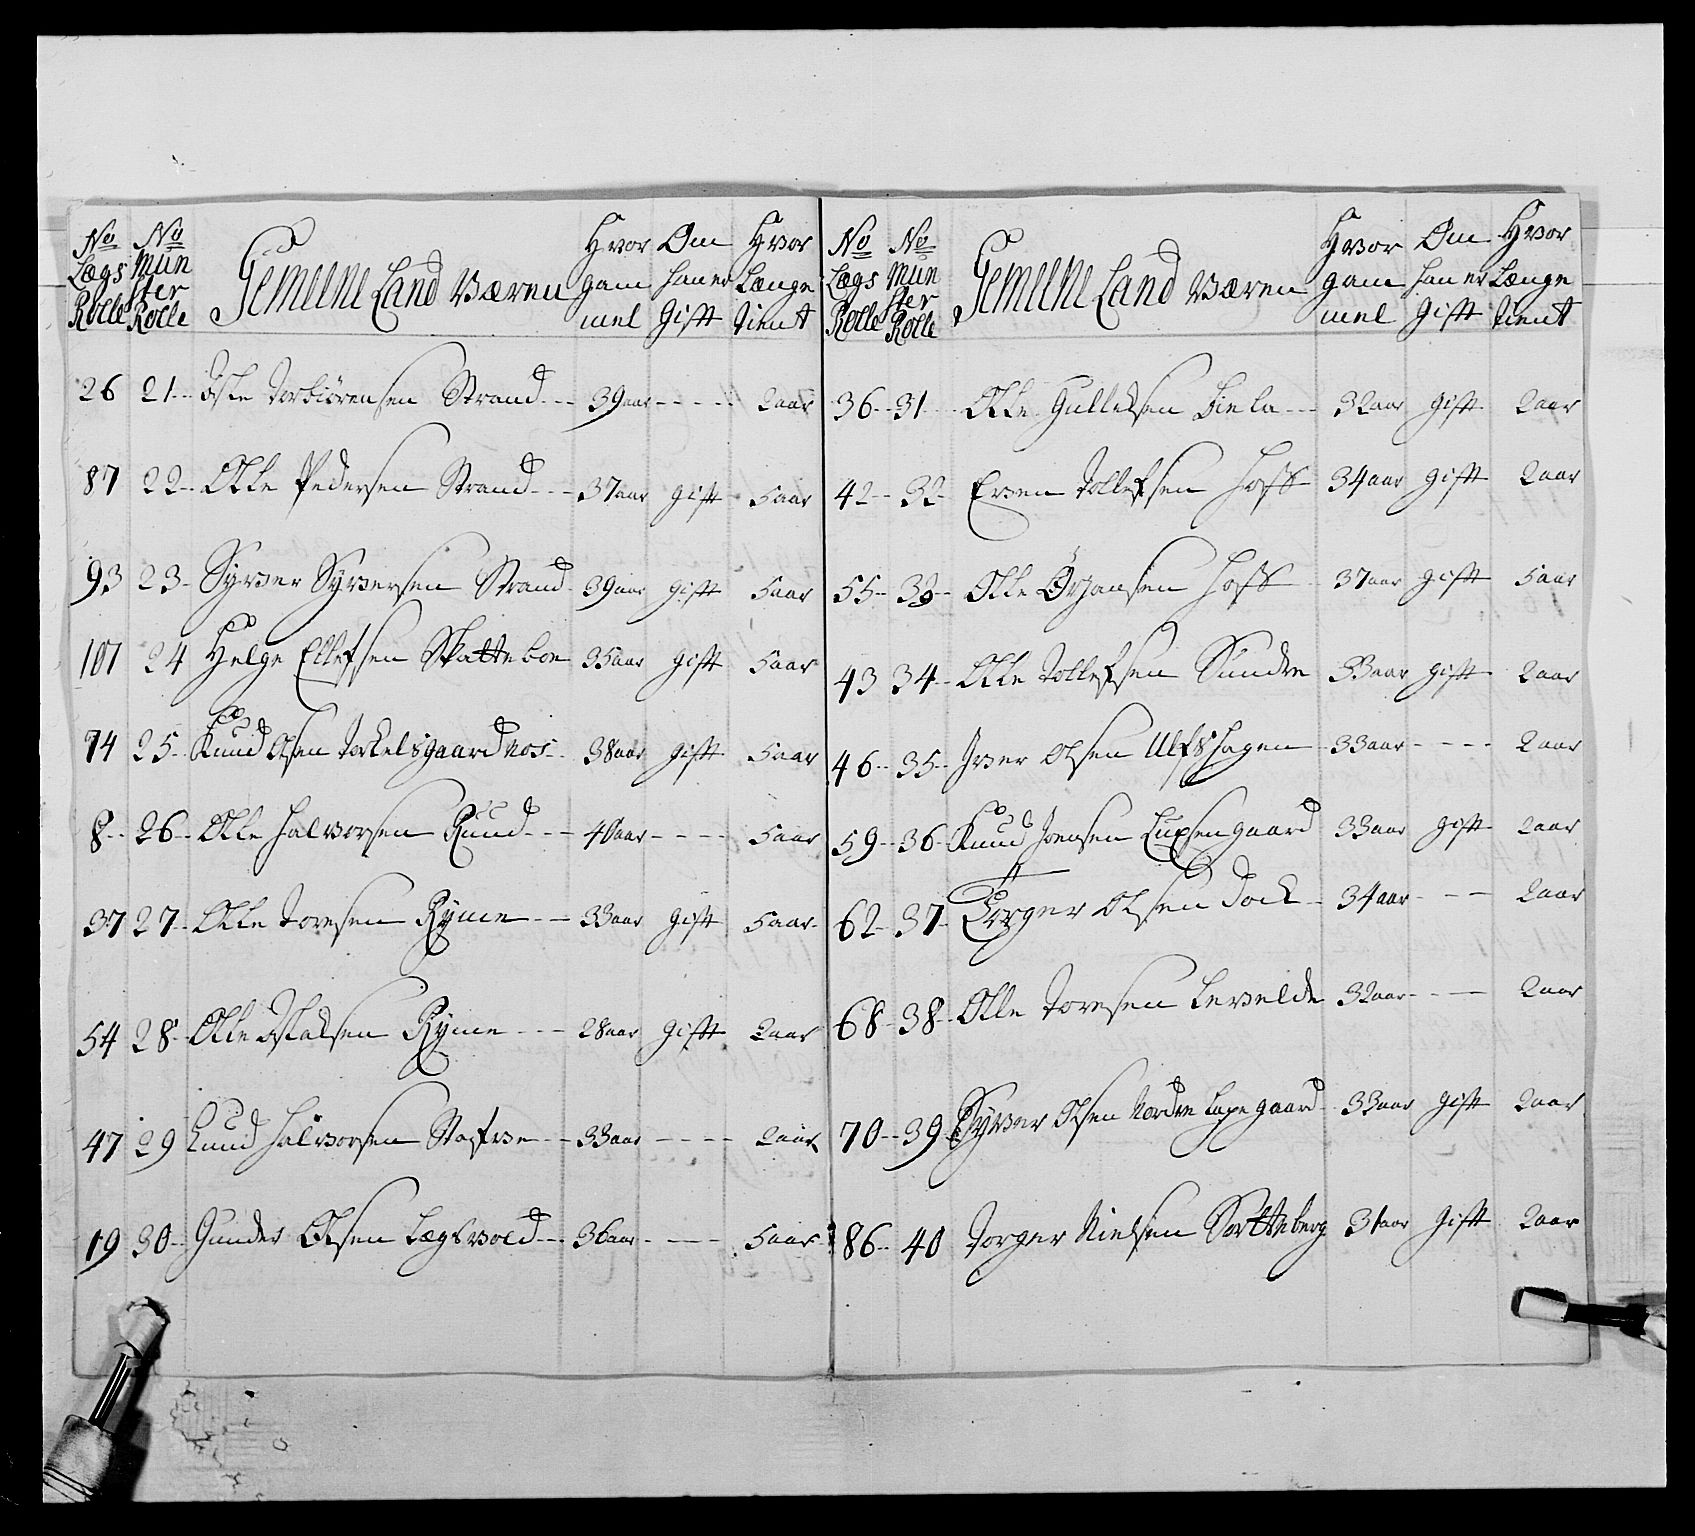 No Lægs Rolle No Mun ster Rolle Gemeene Land Væren Hvor gam mel Om han er Gift Hvor Længe tient
26 21 Aslle Torbiörensen Strand 39 aar 2 aar
87 22 Olle Pedersen Strand 37 aar gift 5 aar
93 23 Syver Syversen Strand 39 aar gift 5 aar
107 24 Helge Ellefsen Skatteboe 35 aar gift 5 aar
74 25 Knud Olsen Torkelsgaard nos 38 aar gift 5 aar
8 26 Olle Halvorsen Ruud 40 aar 5 aar
37 27 Olle Toresen Ryme 33 aar gift 5 aar
54 28 Olle Asladsen Ryme 28 aar gift 2 aar
47 29 Knud Halvorsen Stafve 33 aar 2 aar
19 30 Gunder Olsen Lægsvold 36 aar 5 aar
No Lægs Rolle No Mun ster Rolle Gemeene Land Væren Hvor gam mel Om han er Gift Hvor Længe tient
36 31 Olle Gullelsen Biela 32 aar gift 2 aar
42 32 Even Tollefsen Hoff 34 aar gift 2 aar
55 33 Olle Örjansen Hoff 37 aar gift 5 aar
43 34 Olle Tollefsen Sundre 33 aar gift 2 aar
46 35 Iver Olsen Ulfshagen 33 aar 2 aar
59 36 Knud Joensen Luxsengaard 33 aar gift 2 aar
62 37 Torger Olsen Dock 34 aar 2 aar
68 38 Olle Toresen Levelde 32 aar 2 aar
70 39 Syver Olsen Nordre Laxegaard 33 aar gift 2 aar
86 40 Torger Nielsen Sortteberg 31 aar gift 2 aar